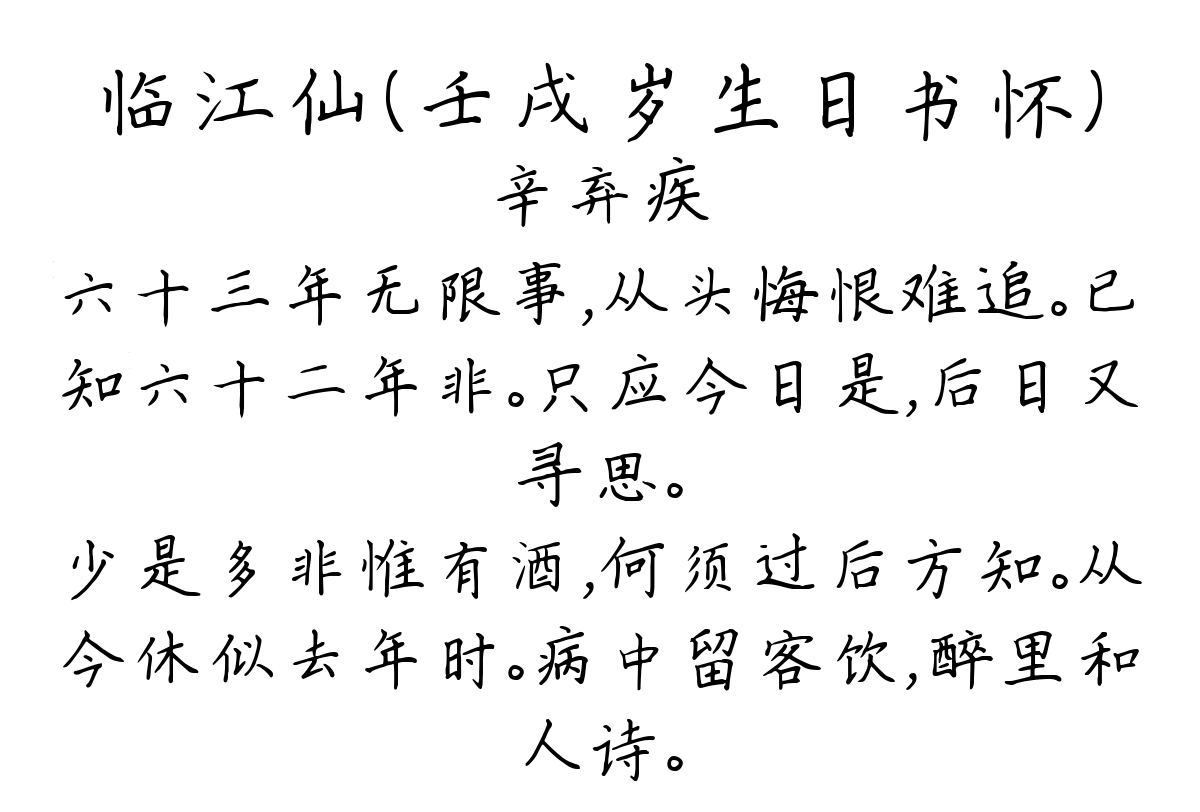 临江仙(壬戌岁生日书怀)
辛弃疾
六十三年无限事,从头悔恨难追。已
知六十二年非。只应今日是,后日又
寻思。
少是多非惟有酒,何须过后方知。从
今休似去年时。病中留客饮,醉里和
人诗。